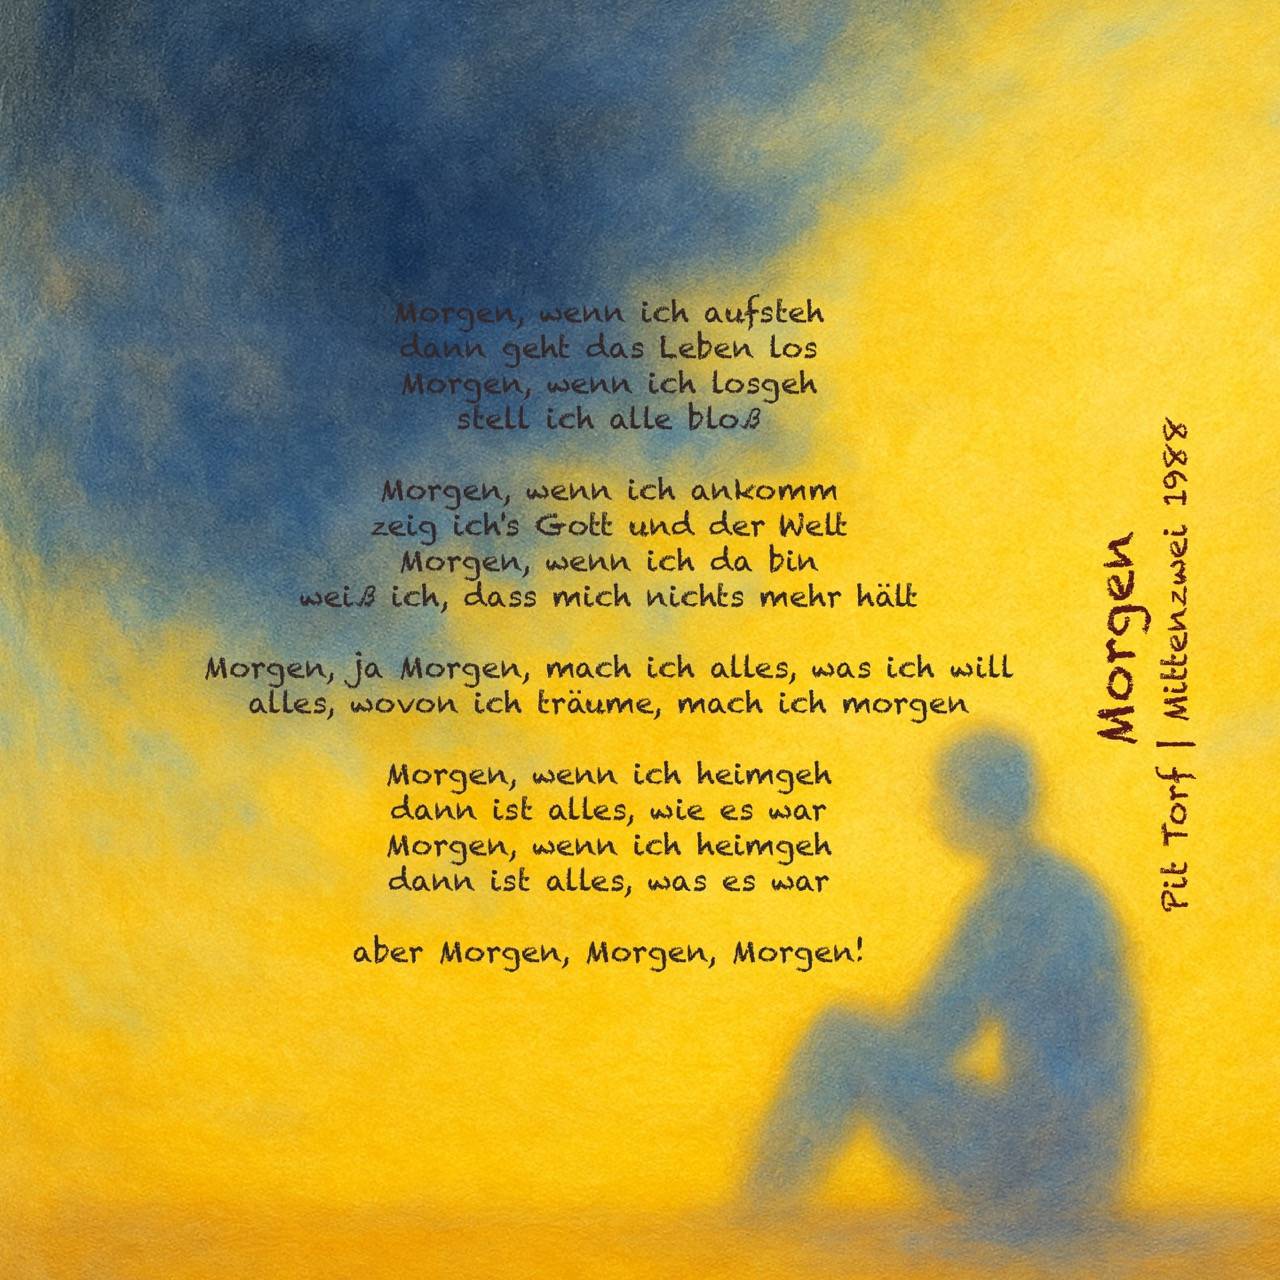 Morgen, wenn ich aufsteh
dann geht das Leben los
Morgen, wenn ich losgeh
stell ich alle bloß
Morgen, wenn ich ankomm
zeig ich's Gott und der Welt
Morgen, wenn ich da bin
weiß ich, dass mich nichts mehr hält
Morgen, ja Morgen, mach ich alles, was ich will
alles, wovon ich träume, mach ich morgen
Morgen, wenn ich heimgeh
dann ist alles, wie es war
Morgen, wenn ich heimgeh
dann ist alles, was es war
aber Morgen, Morgen, Morgen!
Morgen
Pit Torf | Mittenzwei 1988